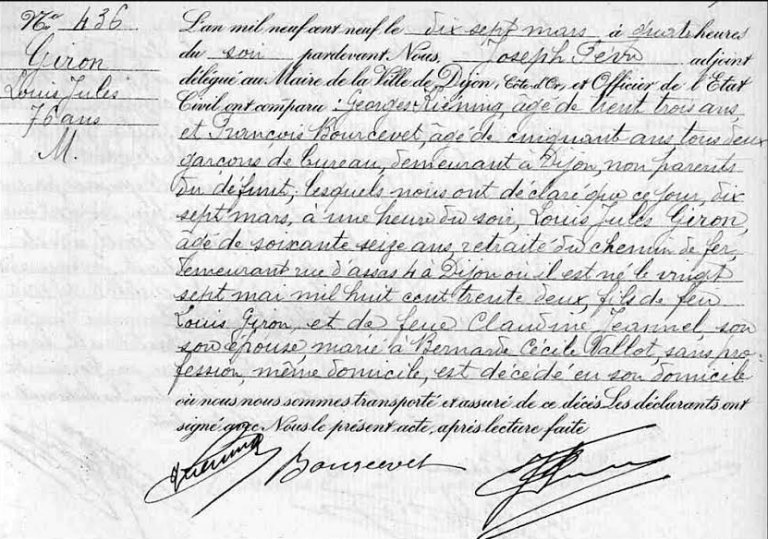 No 436
Giron
Louis Jules
76 ans
M.
L'an mil neuf cent neuf le dix sept mars à quatre heures
du soir pardevant Nous, Joseph adjoint
délégué au Maire de la Ville de Dijon, Côte d'Or, et Officier de l'Etat
Civil ont comparu : Georges âgé de trente trois ans
et François Bourcevet, âgé de cinquante ans tous deux
garçons de bureau, demeurant à Dijon, non parents
du défunt; lesquels nous ont déclaré que ce jour, dix
sept mars, à une heure du soir, Louis Jules Giron,
âgé de soixante seize ans, retraité du chemin de fer,
demeurant rue d'assas 4 à Dijon où il est né le vingt
sept mai mil huit cent trente deux, fils de feu
Louis Giron, et de feue Claudine Jeannel son
son épouse, marié à Bernarde Cécile Vallot, sans pro-
fession, même domicile, est décédé en son domicile
où nous nous sommes transporté et assuré de ce décès. Les déclarants ont
signé avec Nous le présent acte, après lecture faite
Bourcevet